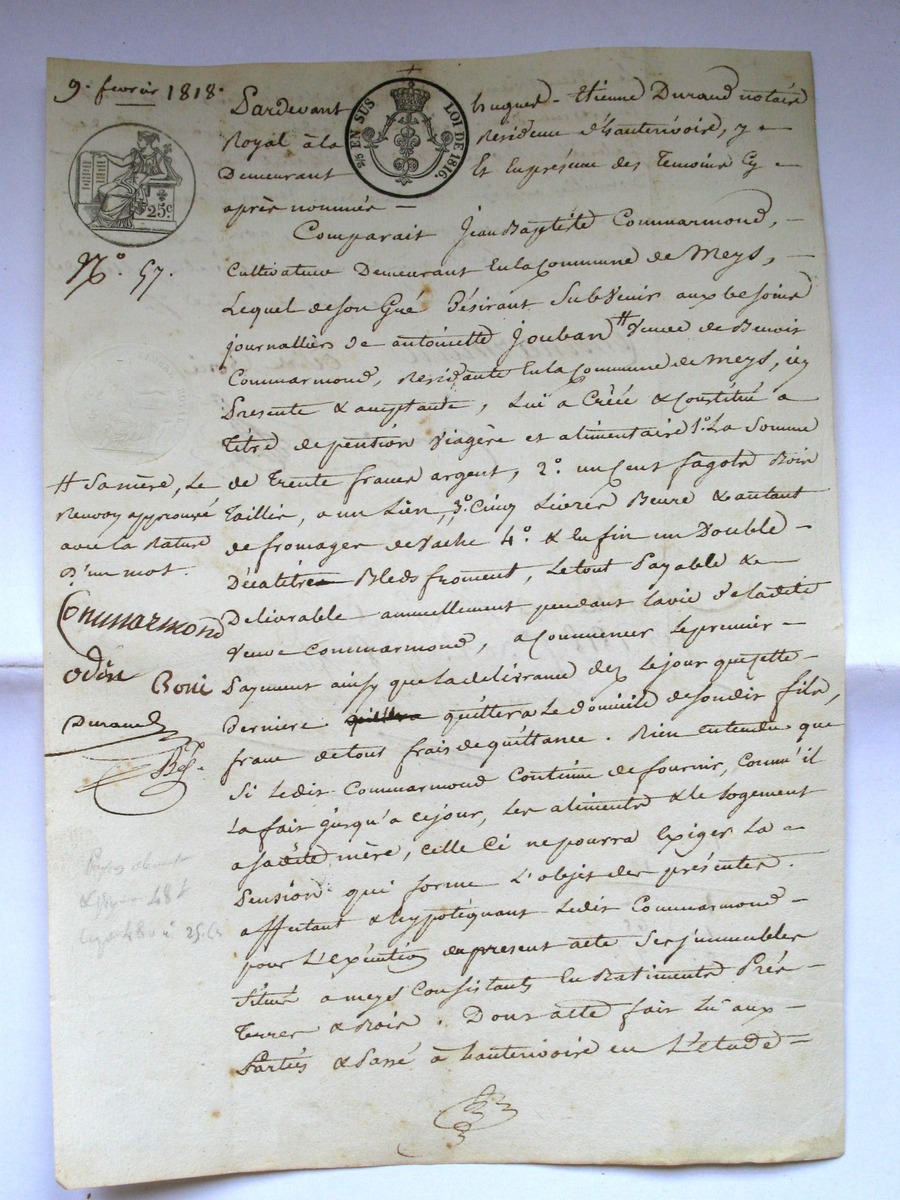 9. fevrier 1818.
25 EN SUS
LOI DE 1816.
25c
N°. 57.
Pardevant hugues-Etienne Durand notaire
Royal à la Residence d'hauterivoire, y
Demeurant Et En presence des Temoins Cy
après nommés
Comparait Jean Baptiste Commarmond,
Cultivateur Demeurant En la Commune de Meys,
Lequel de son Gré Désirant SubVenir aux besoins
journalliers de antoinette Jouban # Veuve de Benoit
Commarmond, Residante En la Commune de Meys, icy
Presente & acceptante, Lui a Créé & Constitué a
Titre de pention Viagère et alimentaire 1°. La Somme
de Trente francs argent, 2°. un Cent fagots Bois
Taillis, a un Lien, 3°. Cinq Livres Beure & autant
de fromages de Vache 4°. & En fin un Double
Décalitre Bleds froment, Le tout Payable &
Délivrable annuellement pendant la vie de ladite
Veuve Commarmond, a Commencer Le premier
Payment ainsy que la délivrance dez le jour que cette
Derniere quittera Le domicile de son dit fils,
franc de tous frais de quittance. Bien entendu que
Si Ledit Commarmond Continue de fournir, Comme il
La fait jusqu'a ce jour, Les aliments & le Logement
a sa dite mère, celle Ci ne pourra Exiger La
Pension qui forme L'objet des présentes.
affectant & hypotéquant Ledit Commarmond
pour L'exécution du present acte Ses jmmeubles
Situés a meys Consistants En Batiments Prés
Terres & Bois. Dont acte fait Lu aux
Parties & Passé à hauterivoire en L'etude
# Sa mère, Le
Renvoy approuvé
avec la Rature
D'un mot.
Commarmond
odin Boni
Durand